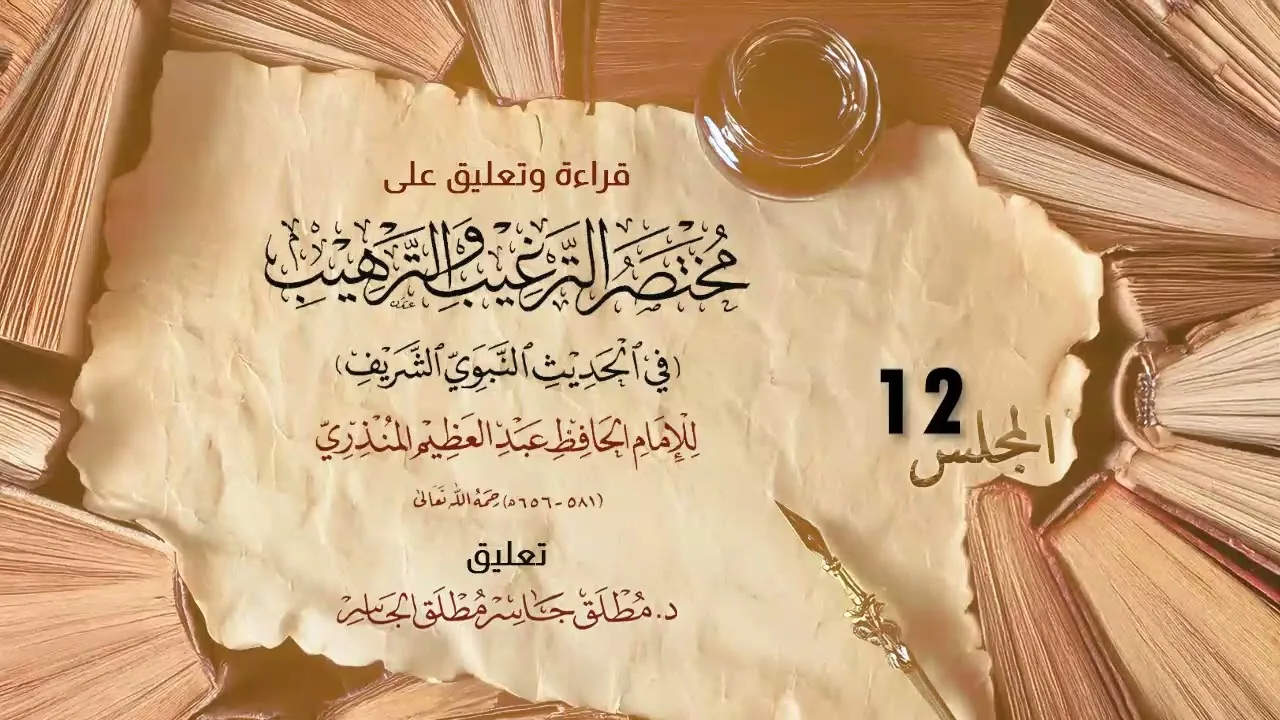 قراءة وتعليق على
مُخْتَصَرُ التَّرْغِيبِ وَالتَّرْهِيبِ
(فِي ٱلْحَدِيْثِ ٱلنَّبَوِيِّ ٱلشَّرِيْفِ)
لِلْإِمَامِ الْحَافِظِ عَبْدِ الْعَظِيْمِ الْمُنْذِرِيِّ
(٥٨١ - ٦٥٦ه) رَحِمَهُ اللهُ تَعَالَىٰ
تعليق
د. مُطْلَق جَاسِر مُطْلَق الجَاسِر
12
المجلس